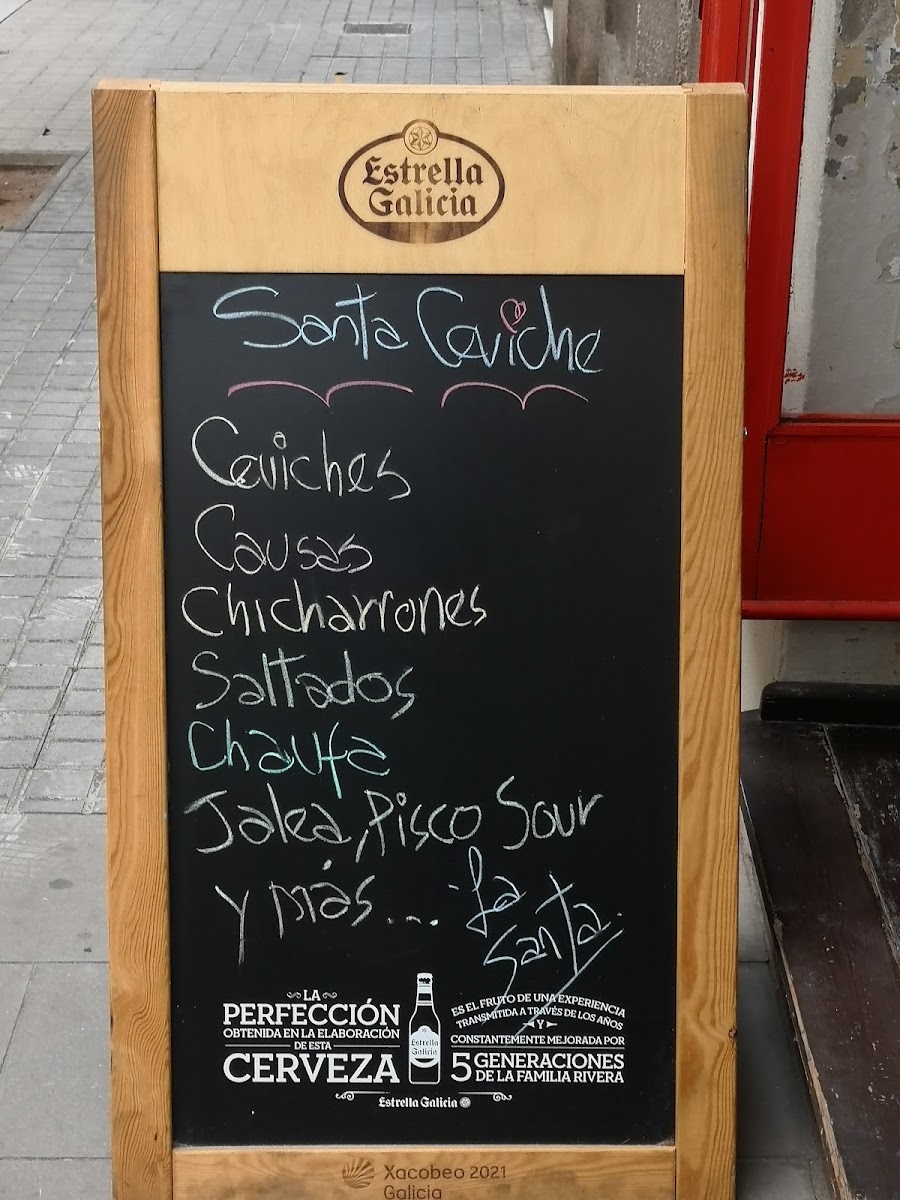 Estrella
Galicia
Santa Ceviche
Ceviches
Causas
Chicharrones
Saltados
Chaufa
Jalea, Pisco Sour
y más... La
Santa.
LA
PERFECCIÓN
OBTENIDA EN LA ELABORACIÓN
DE ESTA
CERVEZA
Estrella
Galicia
ES EL FRUTO DE UNA EXPERIENCIA
TRANSMITIDA A TRAVÉS DE LOS AÑOS
Y
CONSTANTEMENTE MEJORADA POR
5 GENERACIONES
DE LA FAMILIA RIVERA
Estrella Galicia
Xacobeo 2021
Galicia